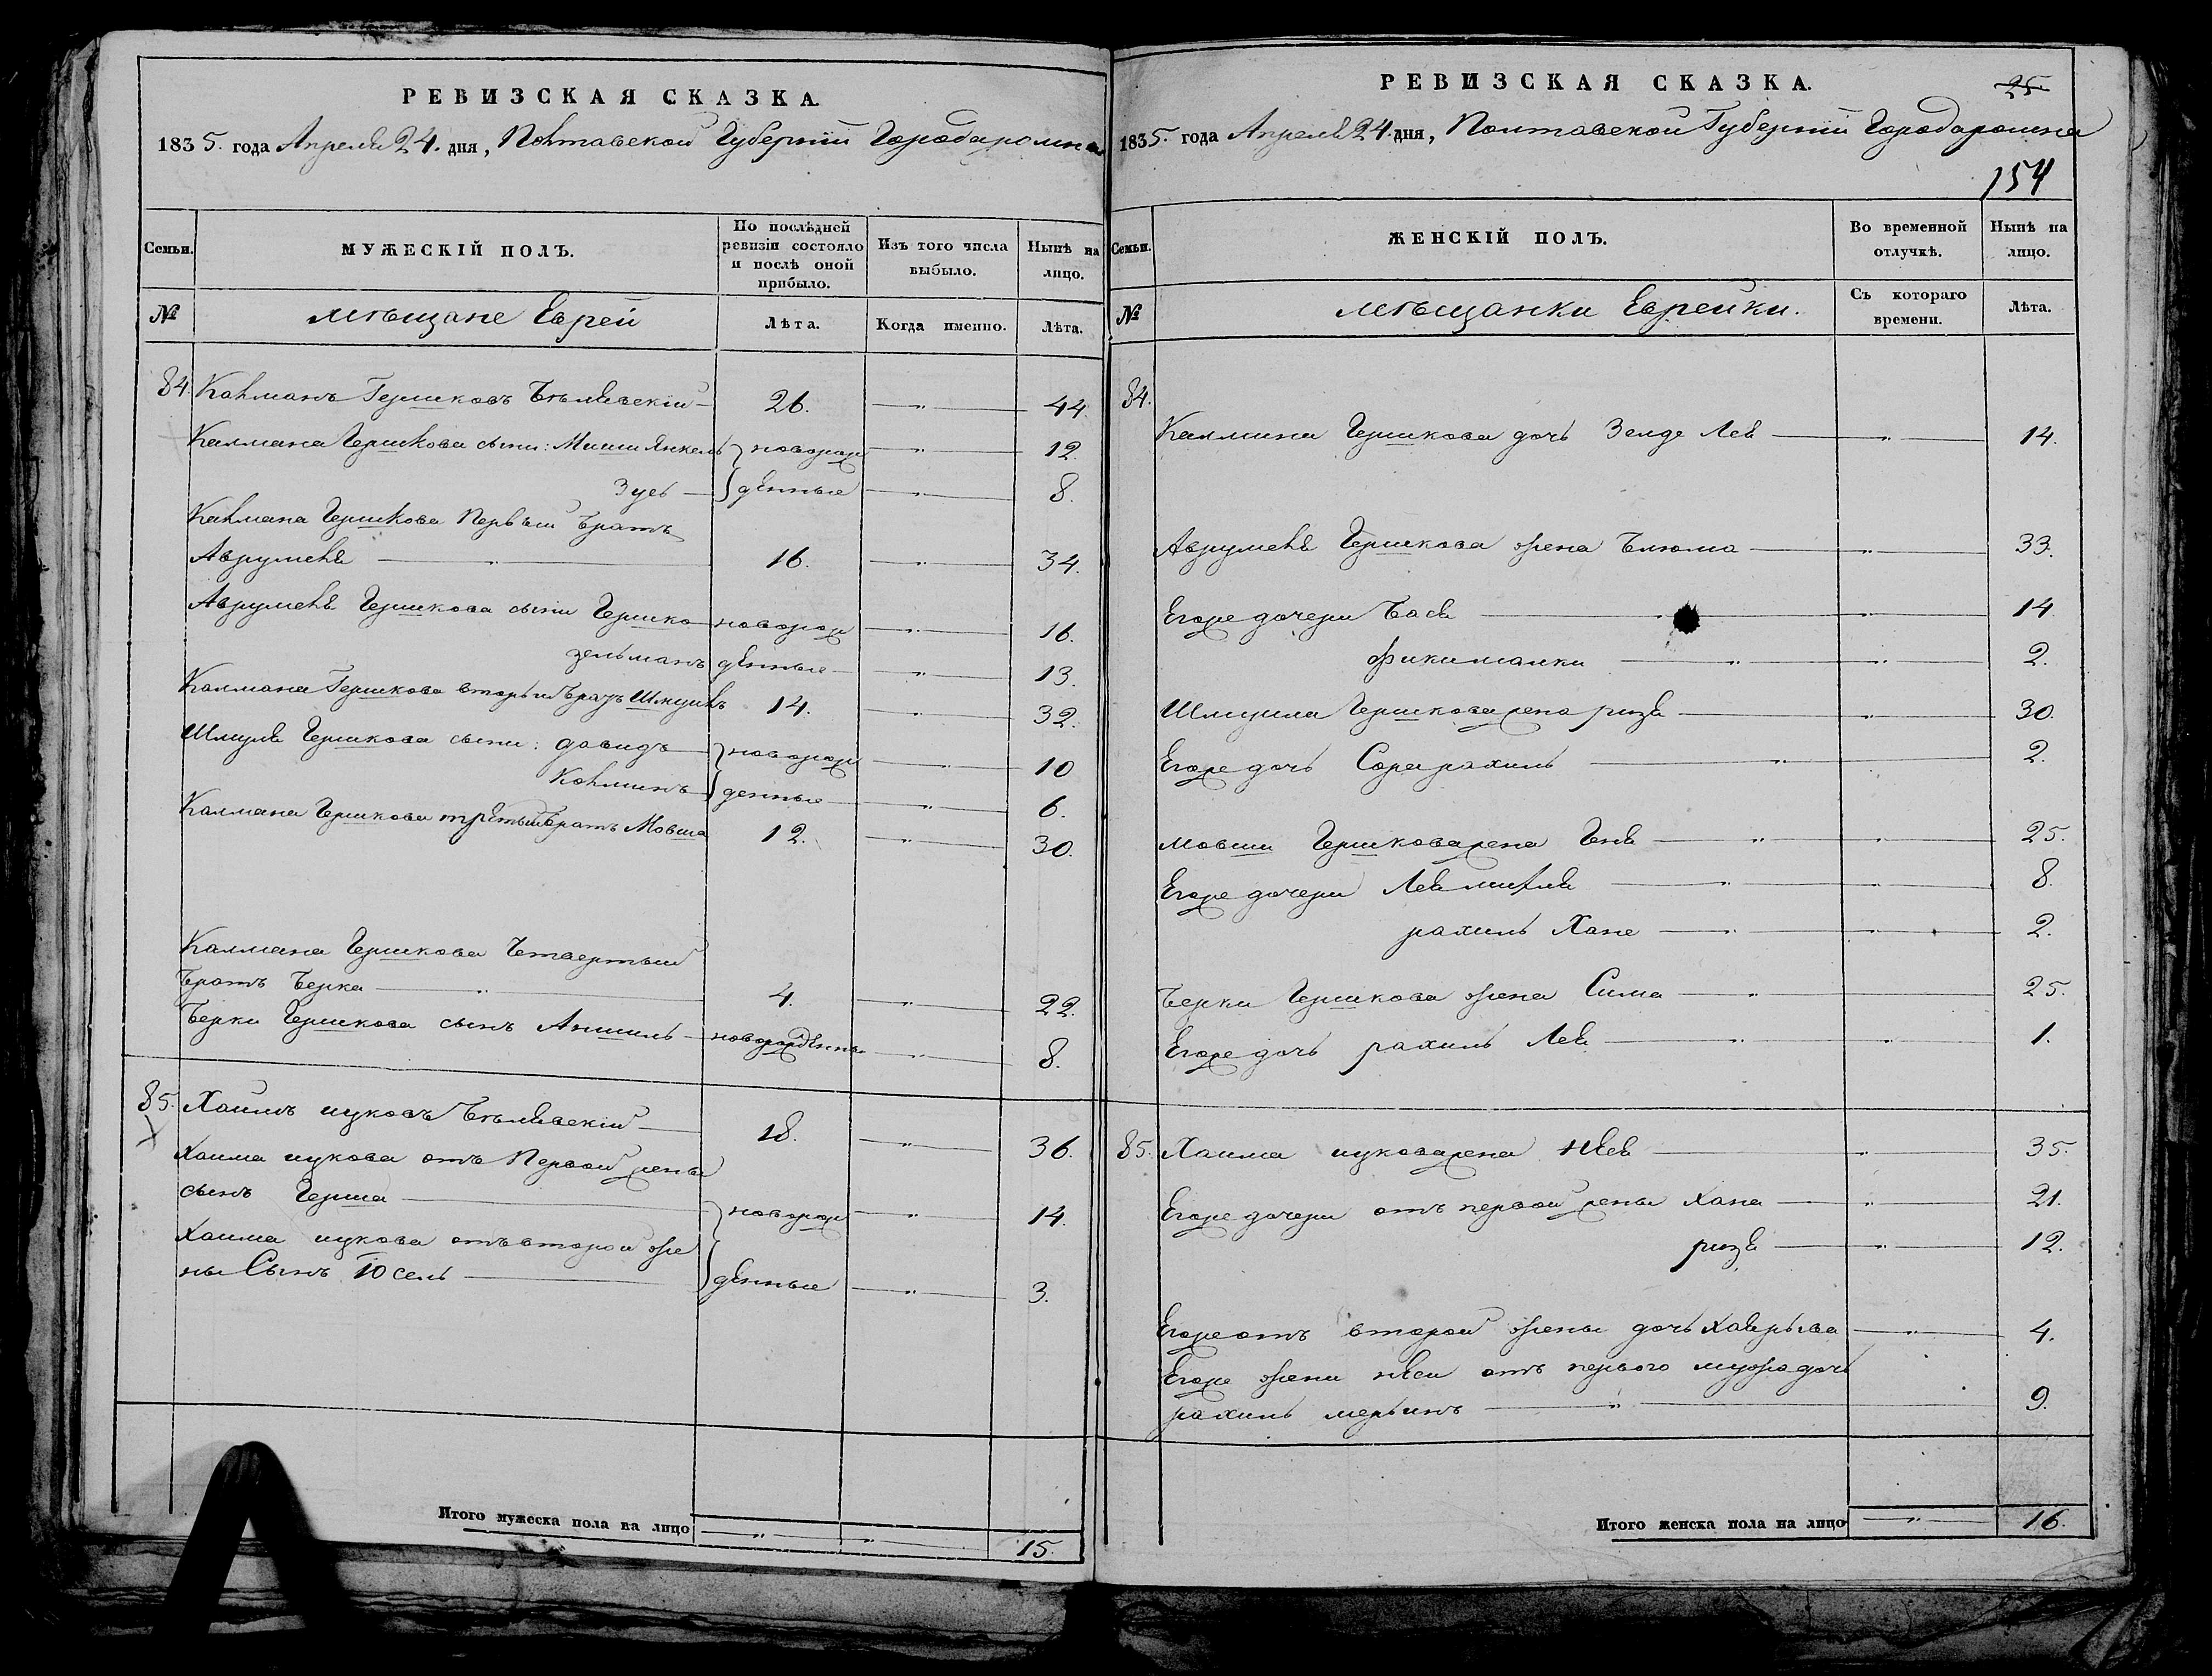 РЕВИЗСКАЯ СКАЗКА.
1835. года Апреля 24. дня, Полтавской Губернии Города
Семьи.
МУЖЕСКІЙ ПОЛЪ.
По послѣдней ревизіи состояло и послѣ оной прибыло.
Изъ того числа выбыло.
Нынѣ на лицо.
№
мѣщане Еврей
Лѣта.
Когда именно.
Лѣта.
84. Калманъ Гершковъ Бѣлявский 26. 44.
Калмана Гершкова сыни: Янкель новорож 12.
Зусь денные 8.
Калмана Гершкова Первый братъ
Аврумель 16. 34.
Аврумеля Гершкова сыни Гершко новорож 16.
Зельманъ денные 13.
Калмана Гершкова вторый братъ Шмуиль 14. 32.
Шмуля Гершкова сыни: Давидъ новорож 10
Калманъ денные 6.
Калмана Гершкова третый братъ Мовша 12. 30.
Калмана Гершкова Четвертый
братъ Берка 4. 22.
Берки Гершкова сынъ Аншиль новорожденны 8.
85. Хаимъ ицковъ Бѣлявский 18. 36.
Хаима ицкова отъ Первой жены
сынъ Герша новорож 14.
Хаима ицкова отъ второй же
ны Сынъ Юсель денные 3.
Итого мужеска пола на лицо 15.
РЕВИЗСКАЯ СКАЗКА.
25.
1835. года Апреля 24. дня, Полтавской Губернии Города
154
Семьи.
ЖЕНСКІЙ ПОЛЪ.
Во временной отлучкѣ.
Нынѣ на лицо.
№
мѣщанки Еврейки.
Съ котораго времени.
Лѣта.
84.
Калмана Гершкова дочь Зелде Лея 14.
Аврумеля Гершкова жена Блюма 33.
Егоже дочери Бася 14
2.
Шмуила Гершкова жена ризя 30.
Егоже дочь Сора рахиль 2.
мовши Гершкова жена Геня 25.
Егоже дочери Лея мирля 8.
рахиль Хане 2.
Берки Гершкова жена Сима 25.
Егоже дочь рахиль Лея 1.
85. Хаима ицкова жена неся 35.
Егоже дочери отъ первой жены Хана 21.
ризя 12.
Егоже отъ второй жены дочь 4.
Егоже жени неси отъ первого мужа дочь
рахиль 9.
Итого женска пола на лицо 16.